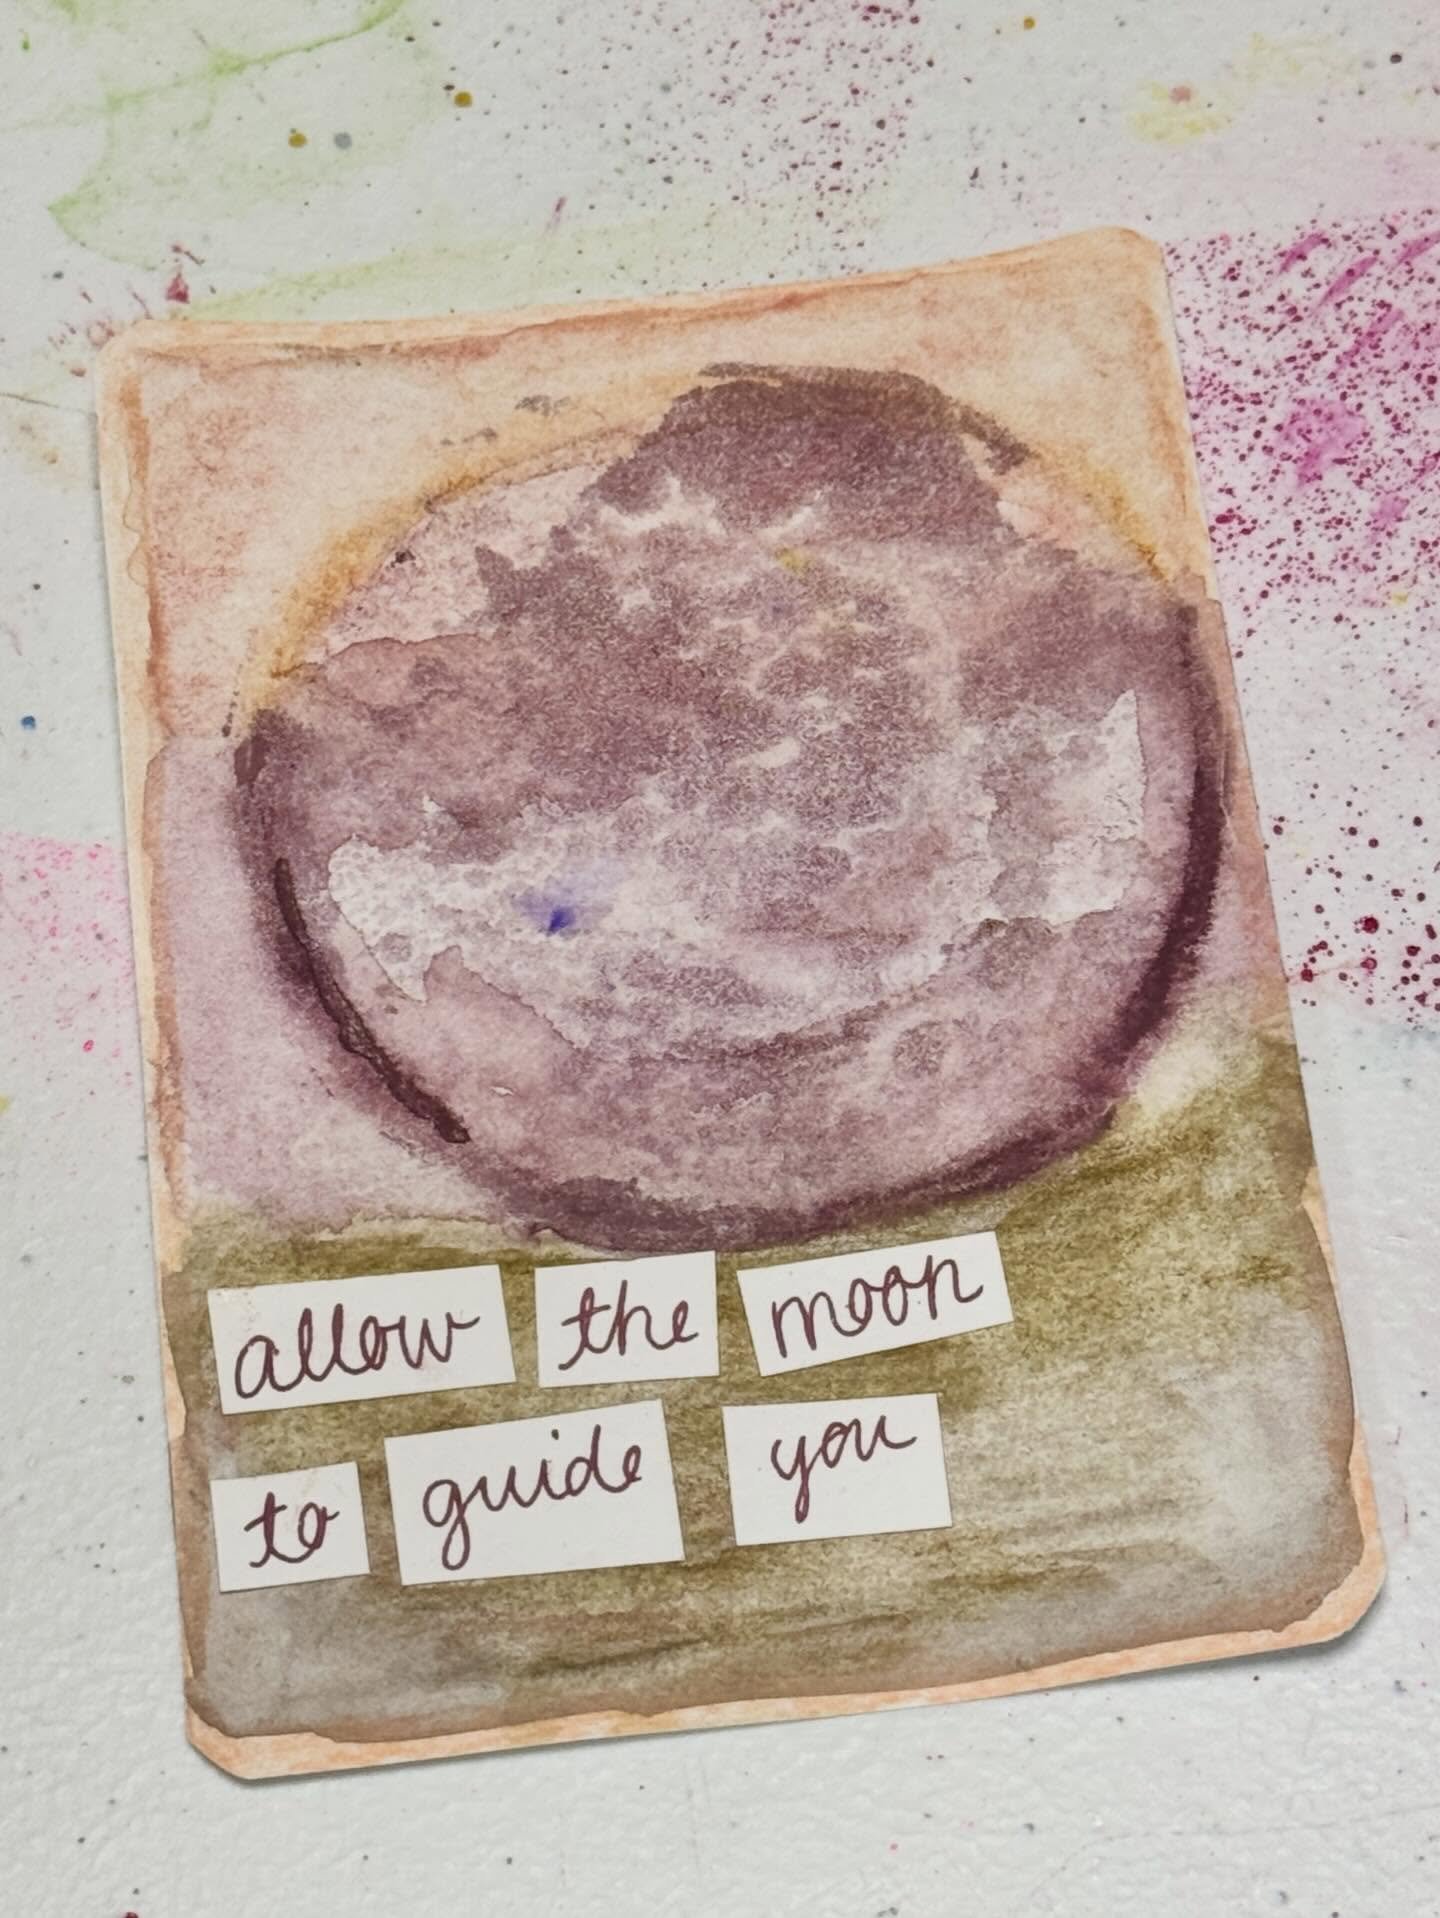 allow the moon
to guide you